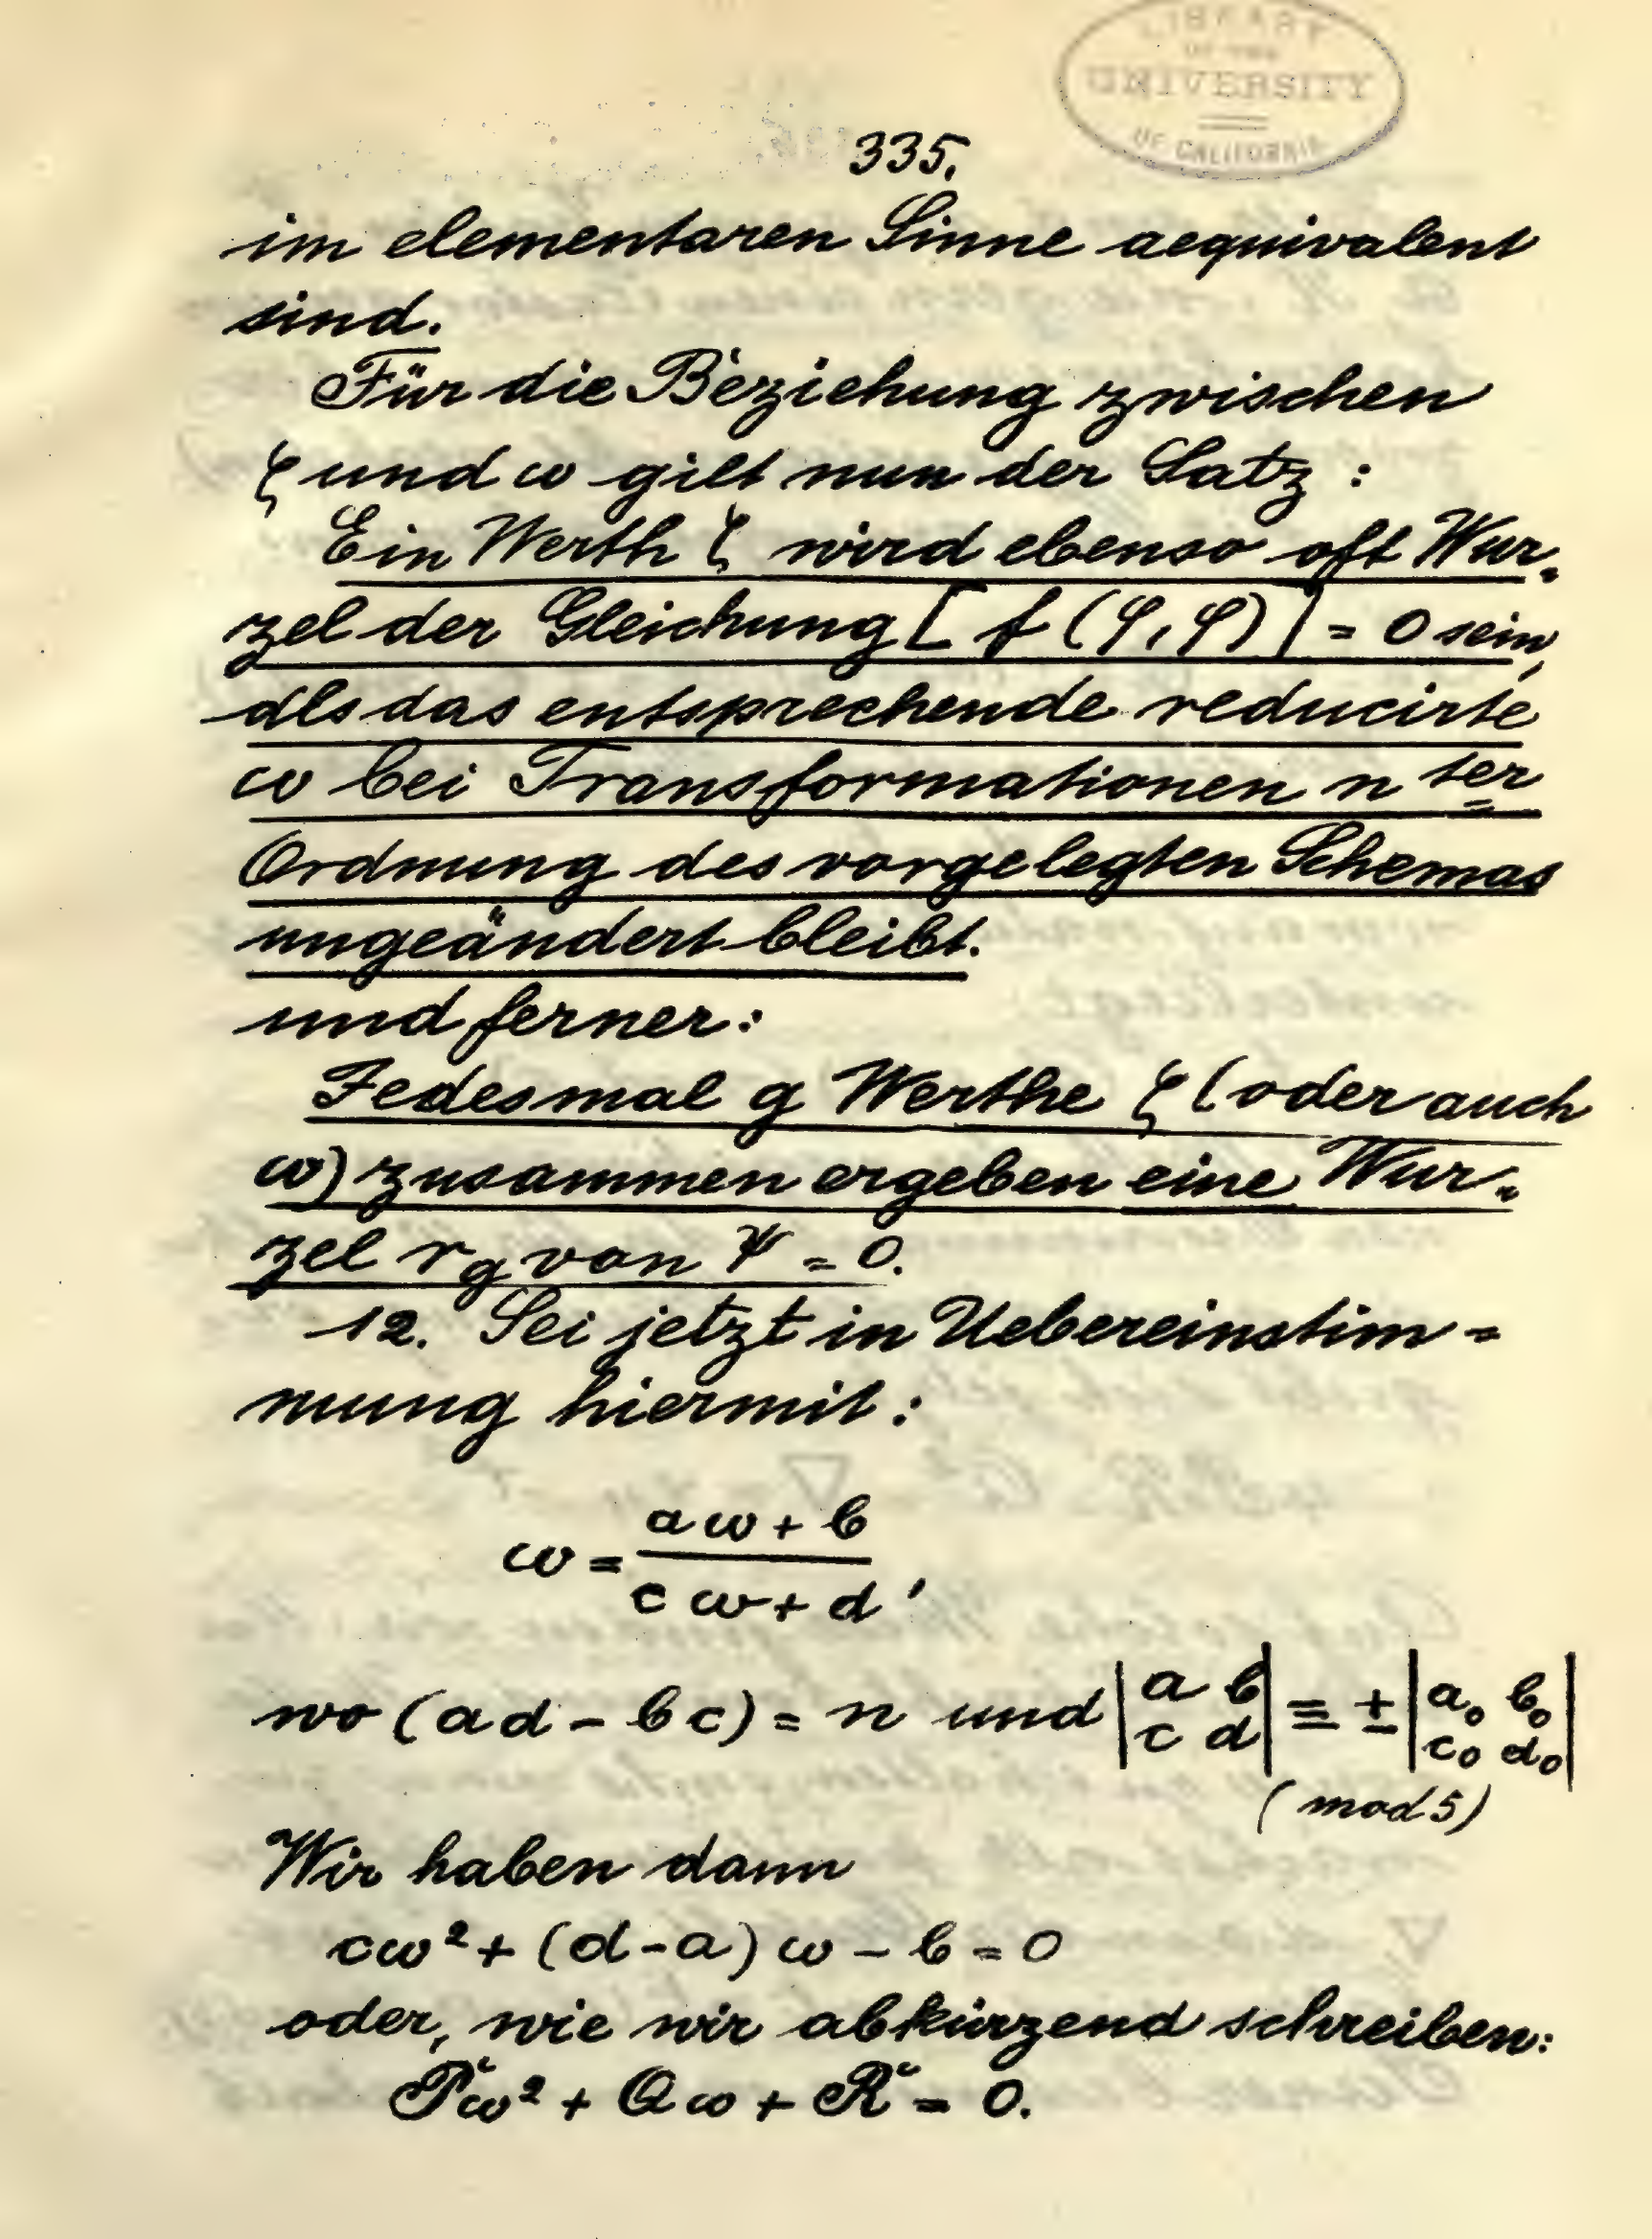 LIBRARY
OF THE
UNIVERSITY
OF CALIFORNIA
335.
im elementaren Sinne aequivalent
sind.
Für die Beziehung zwischen
ζ und ω gilt nun der Satz :
Ein Werth ζ wird ebenso oft Wur-
zel der Gleichung [ f (φ, φ) ] = 0 sein,
als das entsprechende reducirte
ω bei Transformationen n ter
Ordnung des vorgelegten Schemas
ungeändert bleibt.
und ferner:
Jedesmal g Werthe ζ (oder auch
ω) zusammen ergeben eine Wur-
zel r_g von Ψ = 0.
12. Sei jetzt in Uebereinstim=
mung hiermit:
ω = (aω + b)/(cω + d),
wo (ad - bc) = n und |a b; c d| ≡ ± |a₀ b₀; c₀ d₀|
(mod 5)
Wir haben dann
cω² + (d-a) ω - b = 0
oder, wie wir abkürzend schreiben:
Pω² + Qω + R = 0.